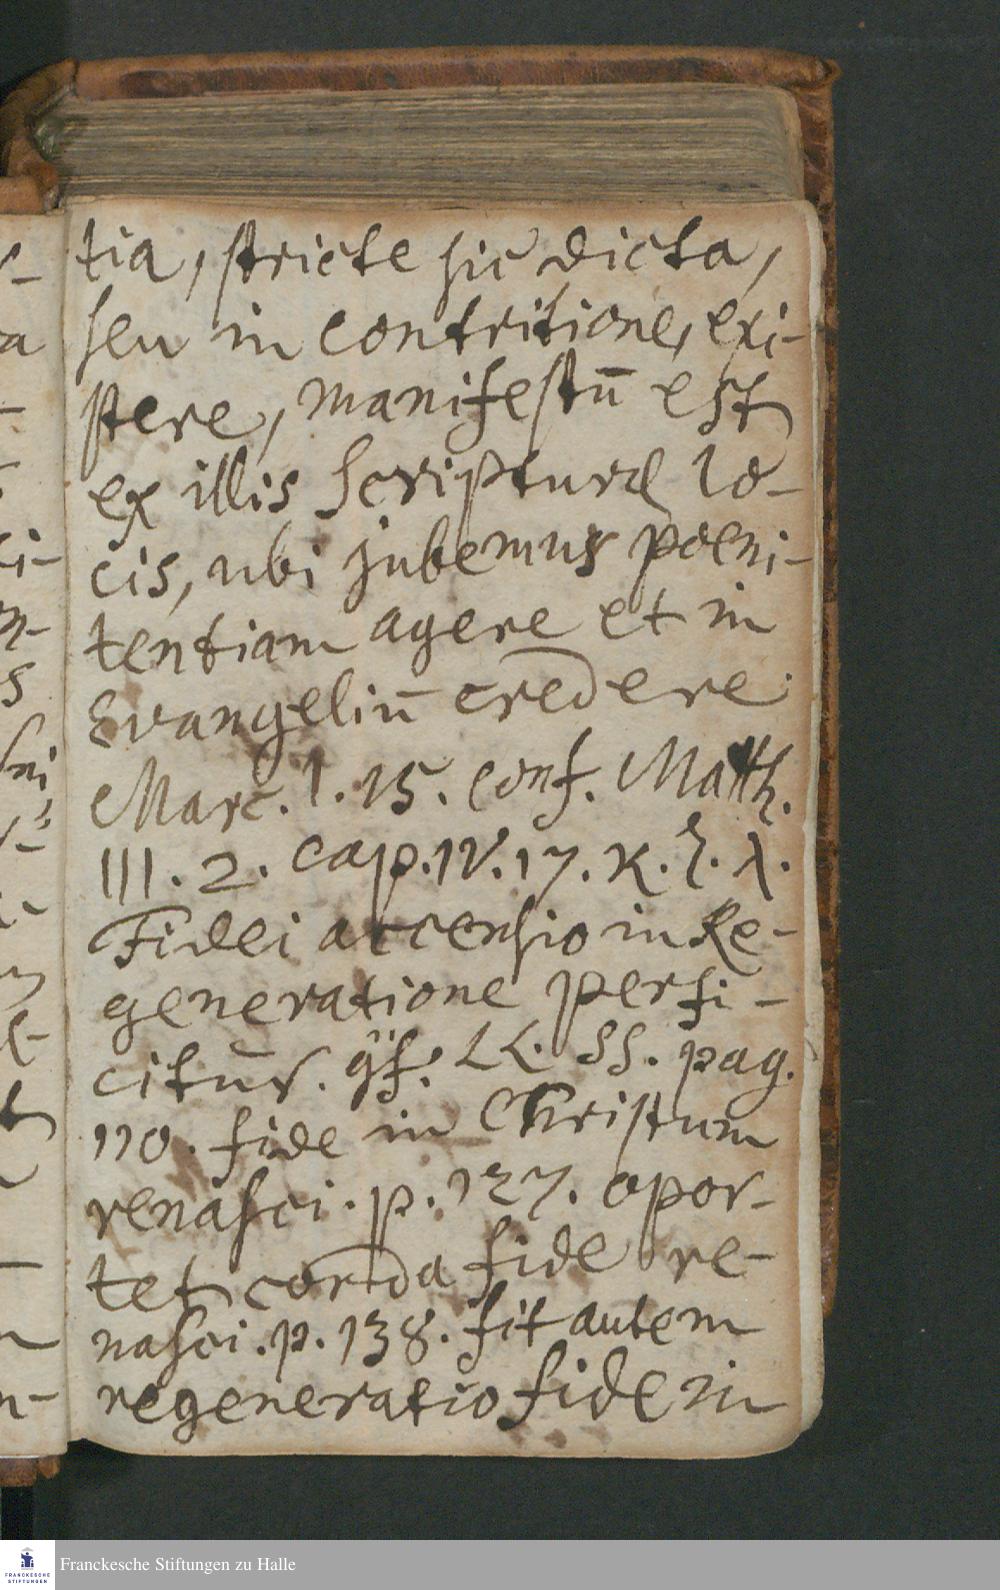 tia, stricte sic dicta,
seu in contritione, exi-
stere, manifestū est
ex illis Scripturæ lo-
cis, ubi jubemur poeni-
tentiam agere et in
Evangeliū credere
Marc. 1. 15. conf. Matth.
III. 2. cap. IV. 17. κ. ξ. λ.
Fidei accensio in Re-
generatione perfi-
citur. LL. SS. pag.
110. fide in Christum
renasci. p. 137. opor-
tet corda fide re-
nasci. p. 138. fit autem
regeneratio fide in
Franckesche Stiftungen zu Halle
FRANCKESCHE
STIFTUNGEN